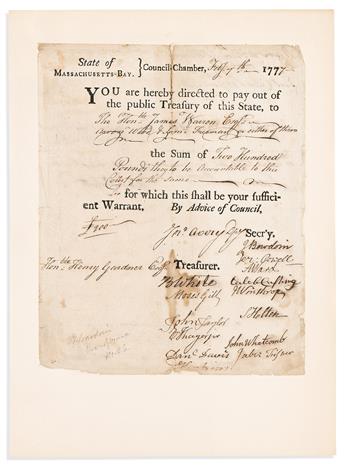 State of
MASSACHUSETTS-BAY. } Council-Chamber, 1777
YOU are hereby directed to pay out of
the public Treasury of this State, to
The Honble James Warren Esqr
or either of them
the Sum of Two Hundred
Pounds they to be accountable to this
for the same
for which this shall be your suffici-
ent Warrant. By Advice of Council,
£200
Jno Avery Dpy Secr'y.
J Bowdoin
Honble Henry Gardner Esqr Treasurer.
A Ward
B White Caleb Cushing
Moses Gill J Winthrop
John Taylor S Holten
John Whitcomb
Danl Davis Jabez Fisher